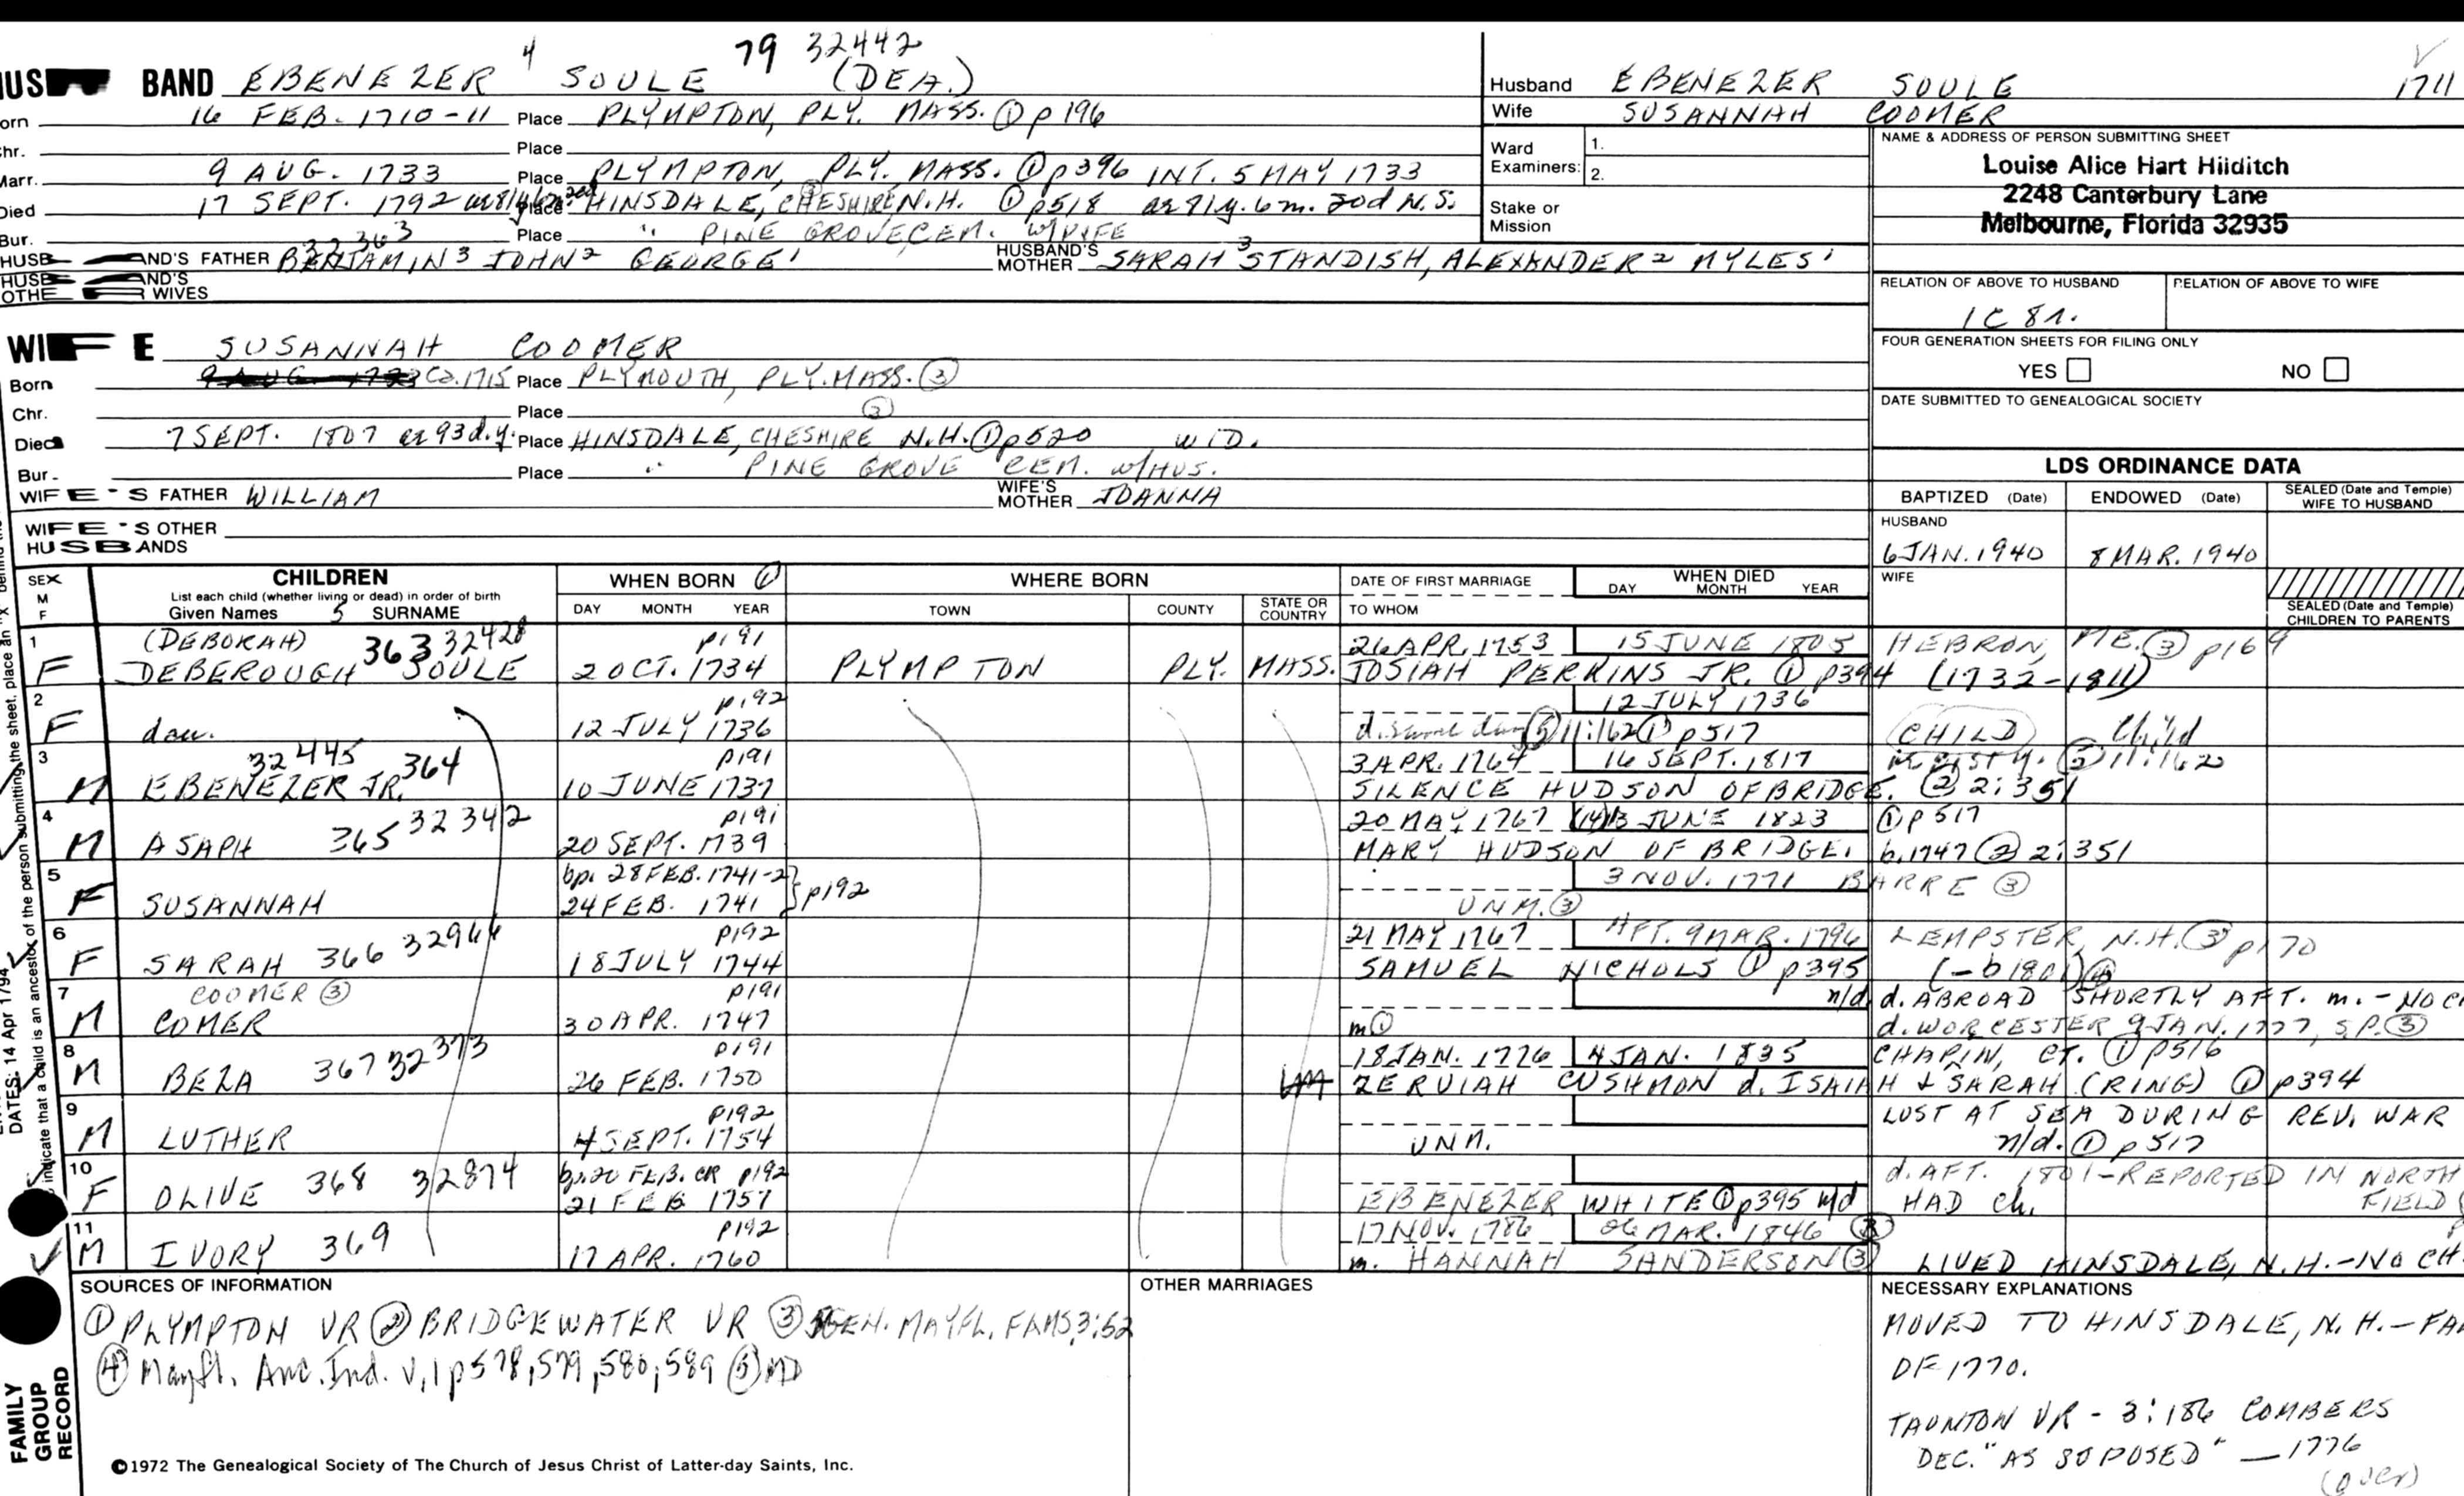 4 79 32442
HUSBAND EBENEZER SOULE (DEA.)
Born 16 FEB. 1710-11 Place PLYMPTON, PLY. MASS. ① p 196
Chr. Place
Marr. 9 AUG. 1733 Place PLYMPTON, PLY. MASS. ① p396 INT. 5 MAY 1733
Died 17 SEPT. 1792 Place HINSDALE, CHESHIRE N.H. ① p518 ae 81y. 6m. 20d N.S.
Bur. Place " PINE GROVE CEM. W/WIFE
32363
HUSBAND'S FATHER BENJAMIN 3 JOHN 2 GEORGE 1 HUSBAND'S MOTHER SARAH 3 STANDISH, ALEXANDER 2 MYLES 1
HUSBAND'S OTHER WIVES
WIFE SUSANNAH COOMER
Born 9 AUG. 1733 Ca. 1715 Place PLYMOUTH, PLY. MASS. ③
Chr. Place ③
Died 7 SEPT. 1807 ae 93 d.y. Place HINSDALE, CHESHIRE N.H. ① p520 WID.
Bur. Place " PINE GROVE CEM. W/HUS.
WIFE'S FATHER WILLIAM WIFE'S MOTHER JOANNA
WIFE'S OTHER HUSBANDS
Husband EBENEZER SOULE 1711
Wife SUSANNAH COOMER
Ward Examiners: 1. 2.
Stake or Mission
NAME & ADDRESS OF PERSON SUBMITTING SHEET
Louise Alice Hart Hilditch
2248 Canterbury Lane
Melbourne, Florida 32935
RELATION OF ABOVE TO HUSBAND RELATION OF ABOVE TO WIFE
1C 8r.
FOUR GENERATION SHEETS FOR FILING ONLY
YES NO
DATE SUBMITTED TO GENEALOGICAL SOCIETY
LDS ORDINANCE DATA
BAPTIZED (Date) ENDOWED (Date) SEALED (Date and Temple) WIFE TO HUSBAND
HUSBAND
6 JAN. 1940 8 MAR. 1940
WIFE
SEALED (Date and Temple) CHILDREN TO PARENTS
SEX M F CHILDREN WHEN BORN ① WHERE BORN DATE OF FIRST MARRIAGE WHEN DIED
List each child (whether living or dead) in order of birth
Given Names 5 SURNAME DAY MONTH YEAR TOWN COUNTY STATE OR COUNTRY TO WHOM DAY MONTH YEAR
1 (DEBORAH) 363 32428 p191 26 APR. 1753 15 JUNE 1805 HEBRON, ME. ③ p169
F DEBEROUGH SOULE 2 OCT. 1734 PLYMPTON PLY. MASS. JOSIAH PERKINS JR. ① p394 (1732-1811)
2 p.192 12 JULY 1736
F dau. 12 JULY 1736 ⑤ 11:162 ① p517 CHILD Child
3 32445 364 p191 3 APR. 1764 16 SEPT. 1817 ⑤ 11:162
M EBENEZER JR. 10 JUNE 1737 SILENCE HUDSON OF BRIDGE. ② 2:351
4 365 32342 p191 20 MAY 1767 (14) 13 JUNE 1823 ① p517
M ASAPH 20 SEPT. 1739 MARY HUDSON OF BRIDGE. b. 1747 ② 2:351
5 bp. 28 FEB. 1741-2 3 NOV. 1771 BARRE ③
F SUSANNAH 24 FEB. 1741 } p192 UNM. ③
6 p192 21 MAY 1767 AFT. 9 MAR. 1796 LEMPSTER, N.H. ③ p170
F SARAH 366 32944 18 JULY 1744 SAMUEL NICHOLS ① p395 (-b 1801) ④
7 COOMER ③ p191 n/d d. ABROAD SHORTLY AFT. m. - NO CH
M COMER 30 APR. 1747 m ① d. WORCESTER 9 JAN. 1777, S.P. ③
8 p191 18 JAN. 1776 4 JAN. 1835 CHAPIN, CT. ① p516
M BEZA 367 32373 26 FEB. 1750 ZERUIAH CUSHMON d. ISAIAH & SARAH (RING) ① p394
9 p192 LOST AT SEA DURING REV. WAR
M LUTHER 4 SEPT. 1754 UNM. n/d. ① p517
10 bp. 20 FEB. CR p192 d. AFT. 1801 - REPORTED IN NORTH FIELD
F OLIVE 368 32874 21 FEB 1757 EBENEZER WHITE ① p395 n/d HAD Ch.
11 p192 17 NOV. 1786 26 MAR. 1846 ③
M IVORY 369 17 APR. 1760 m. HANNAH SANDERSON ③ LIVED HINSDALE, N.H. - NO CH.
SOURCES OF INFORMATION
① PLYMPTON VR ② BRIDGEWATER VR ③ GEN. MAYFL. FAMS 3:52
④ Mayfl. Anc. Ind. v, 1 p578, 579, 580, 589 ⑤ MD
OTHER MARRIAGES
NECESSARY EXPLANATIONS
MOVED TO HINSDALE, N.H. - FALL
OF 1770.
TAUNTON VR - 3:186 COMBERS
DEC. "AS SUPOSED" - 1776
(over)
©1972 The Genealogical Society of The Church of Jesus Christ of Latter-day Saints, Inc.
FAMILY GROUP RECORD
DATES: 14 Apr 1794
indicate that a child is an ancestor of the person submitting the sheet, place an "X" behind the